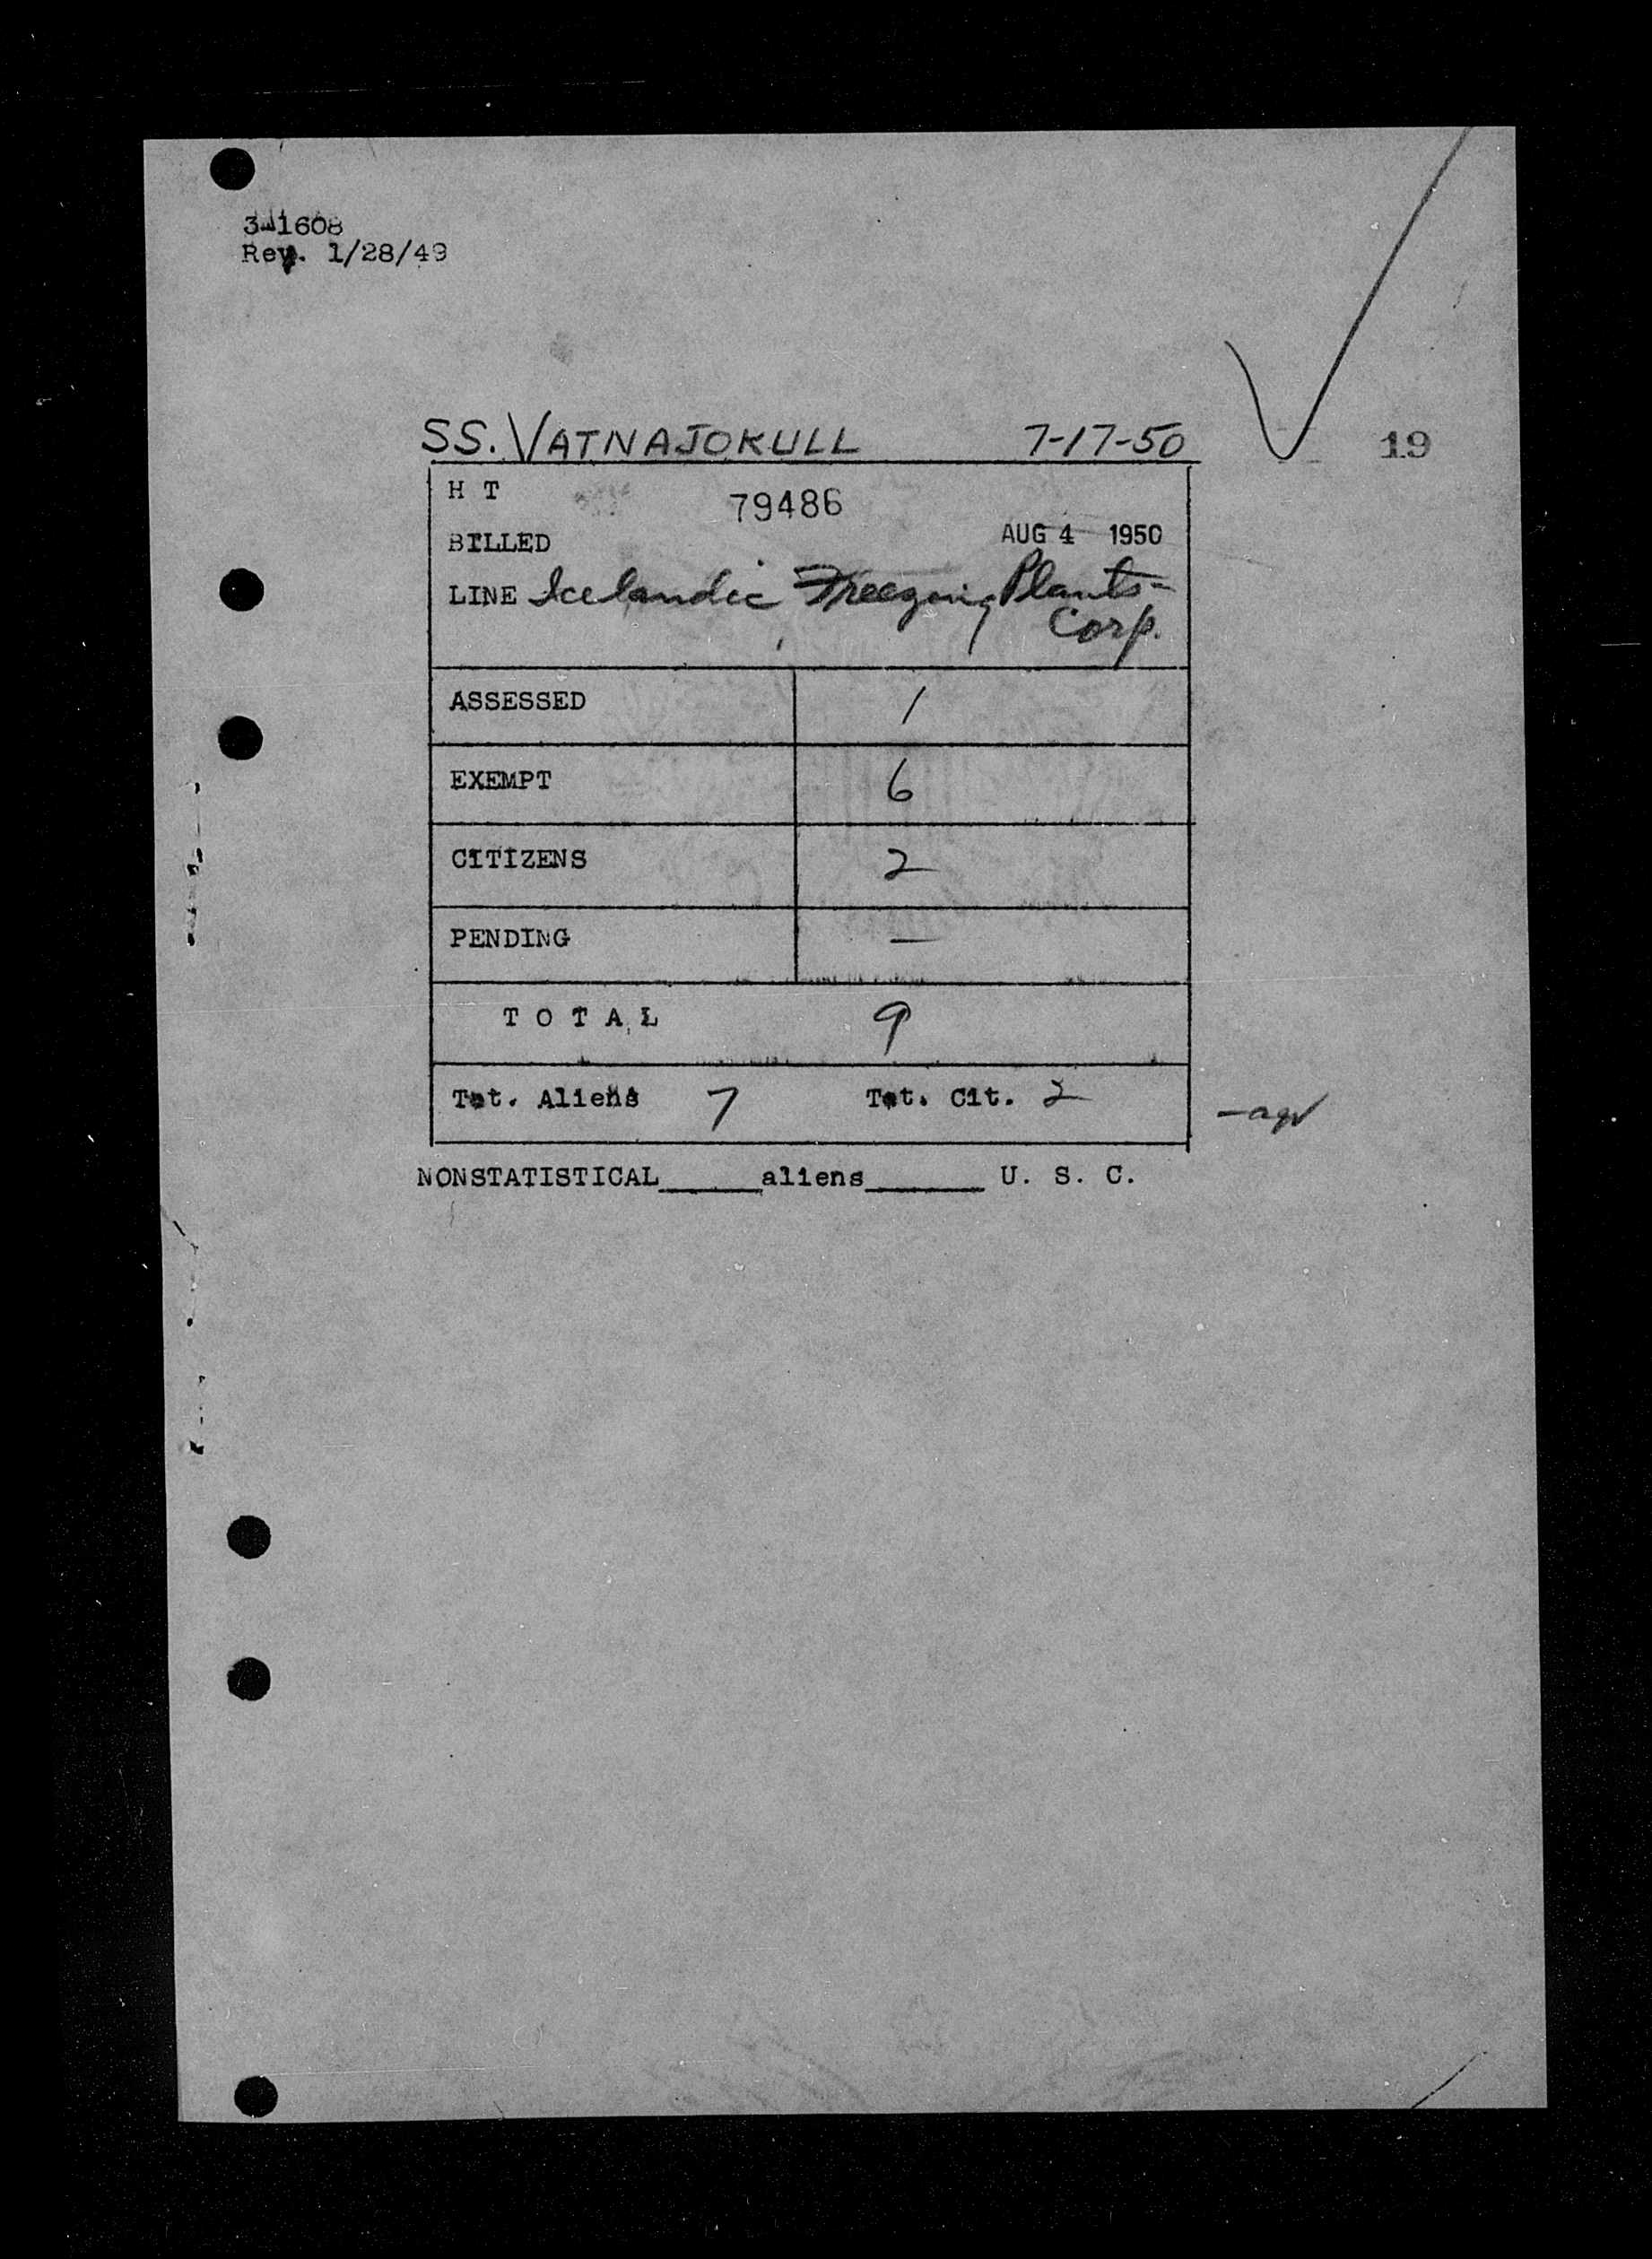 3-1608
Rev. 1/28/49
SS. VATNAJOKULL 7-17-50
19
H T
79486
BILLED AUG 4 1950
LINE Icelandic Freezing Plants-
Corp.
ASSESSED 1
EXEMPT 6
CITIZENS 2
PENDING —
T O T A L 9
Tot. Aliens 7 Tot. Cit. 2
NONSTATISTICAL_____aliens______ U. S. C.